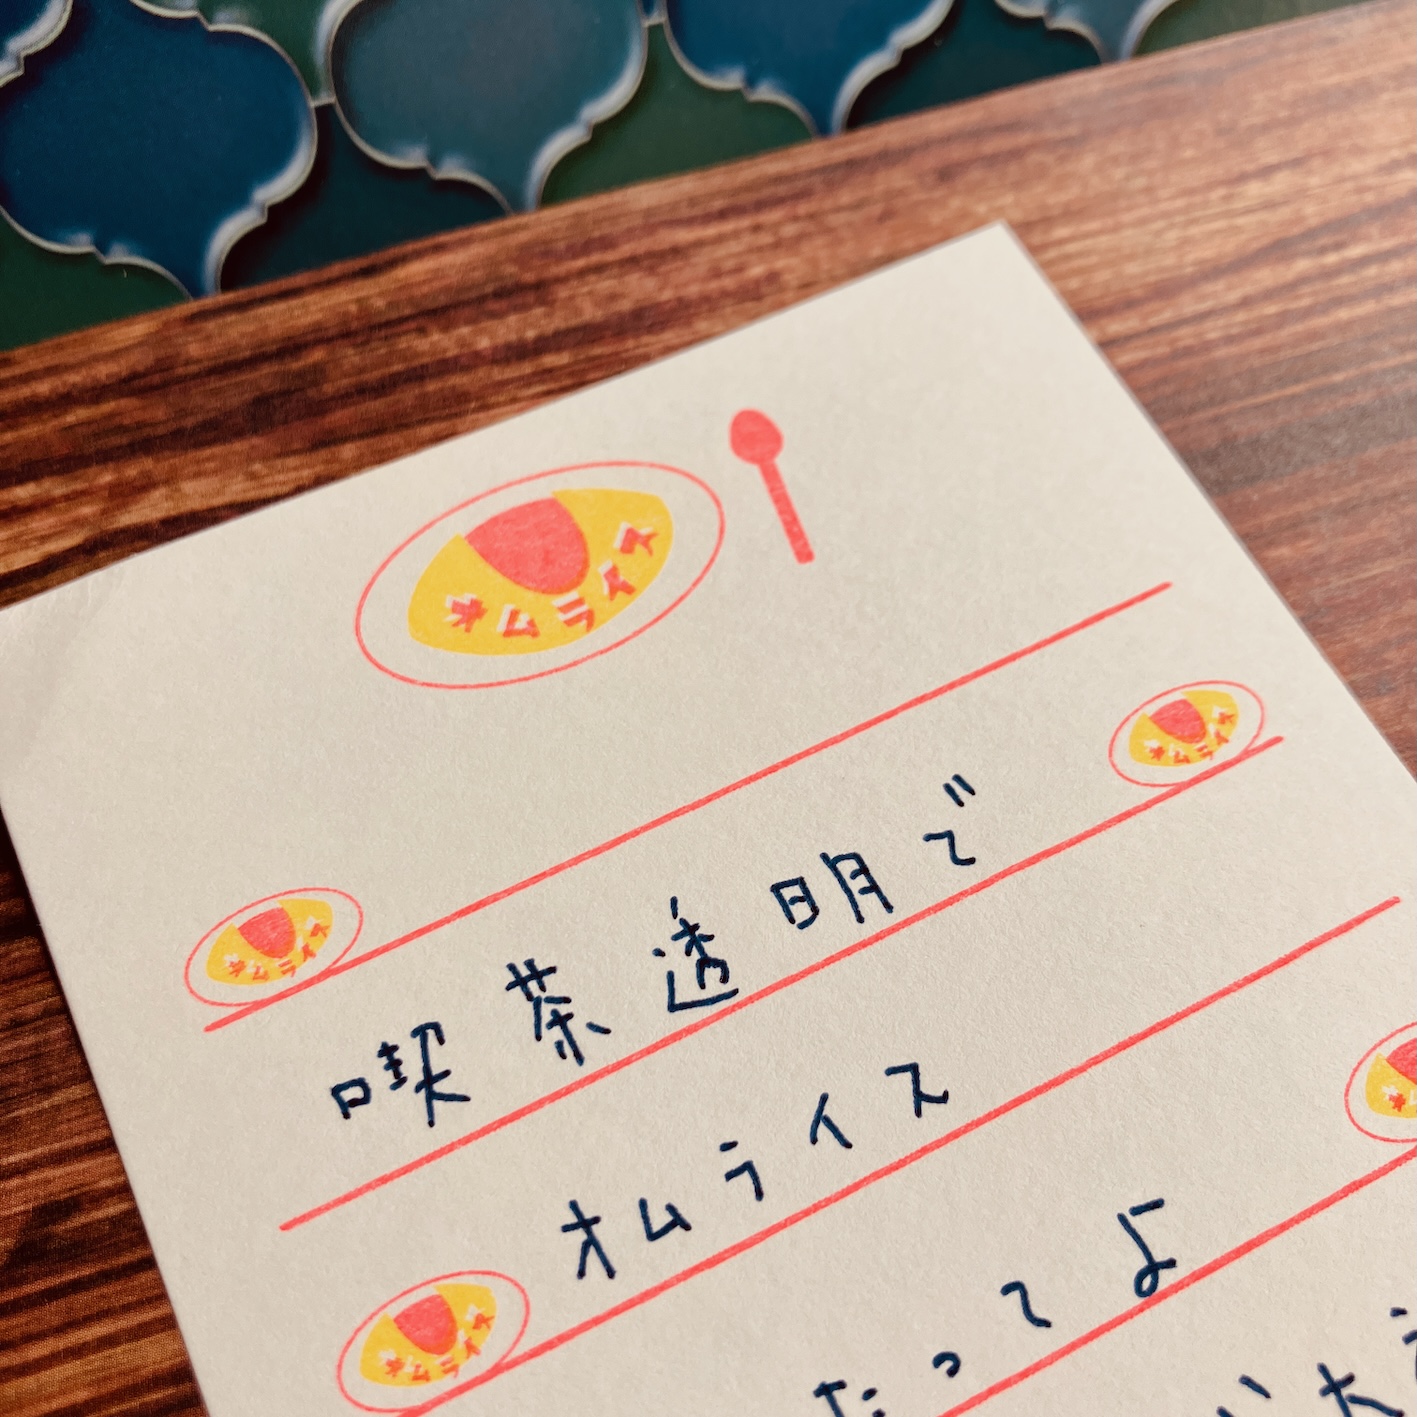 オムライス
オムライス
オムライス
喫茶透明で
オムライス
オムライス
たってよ